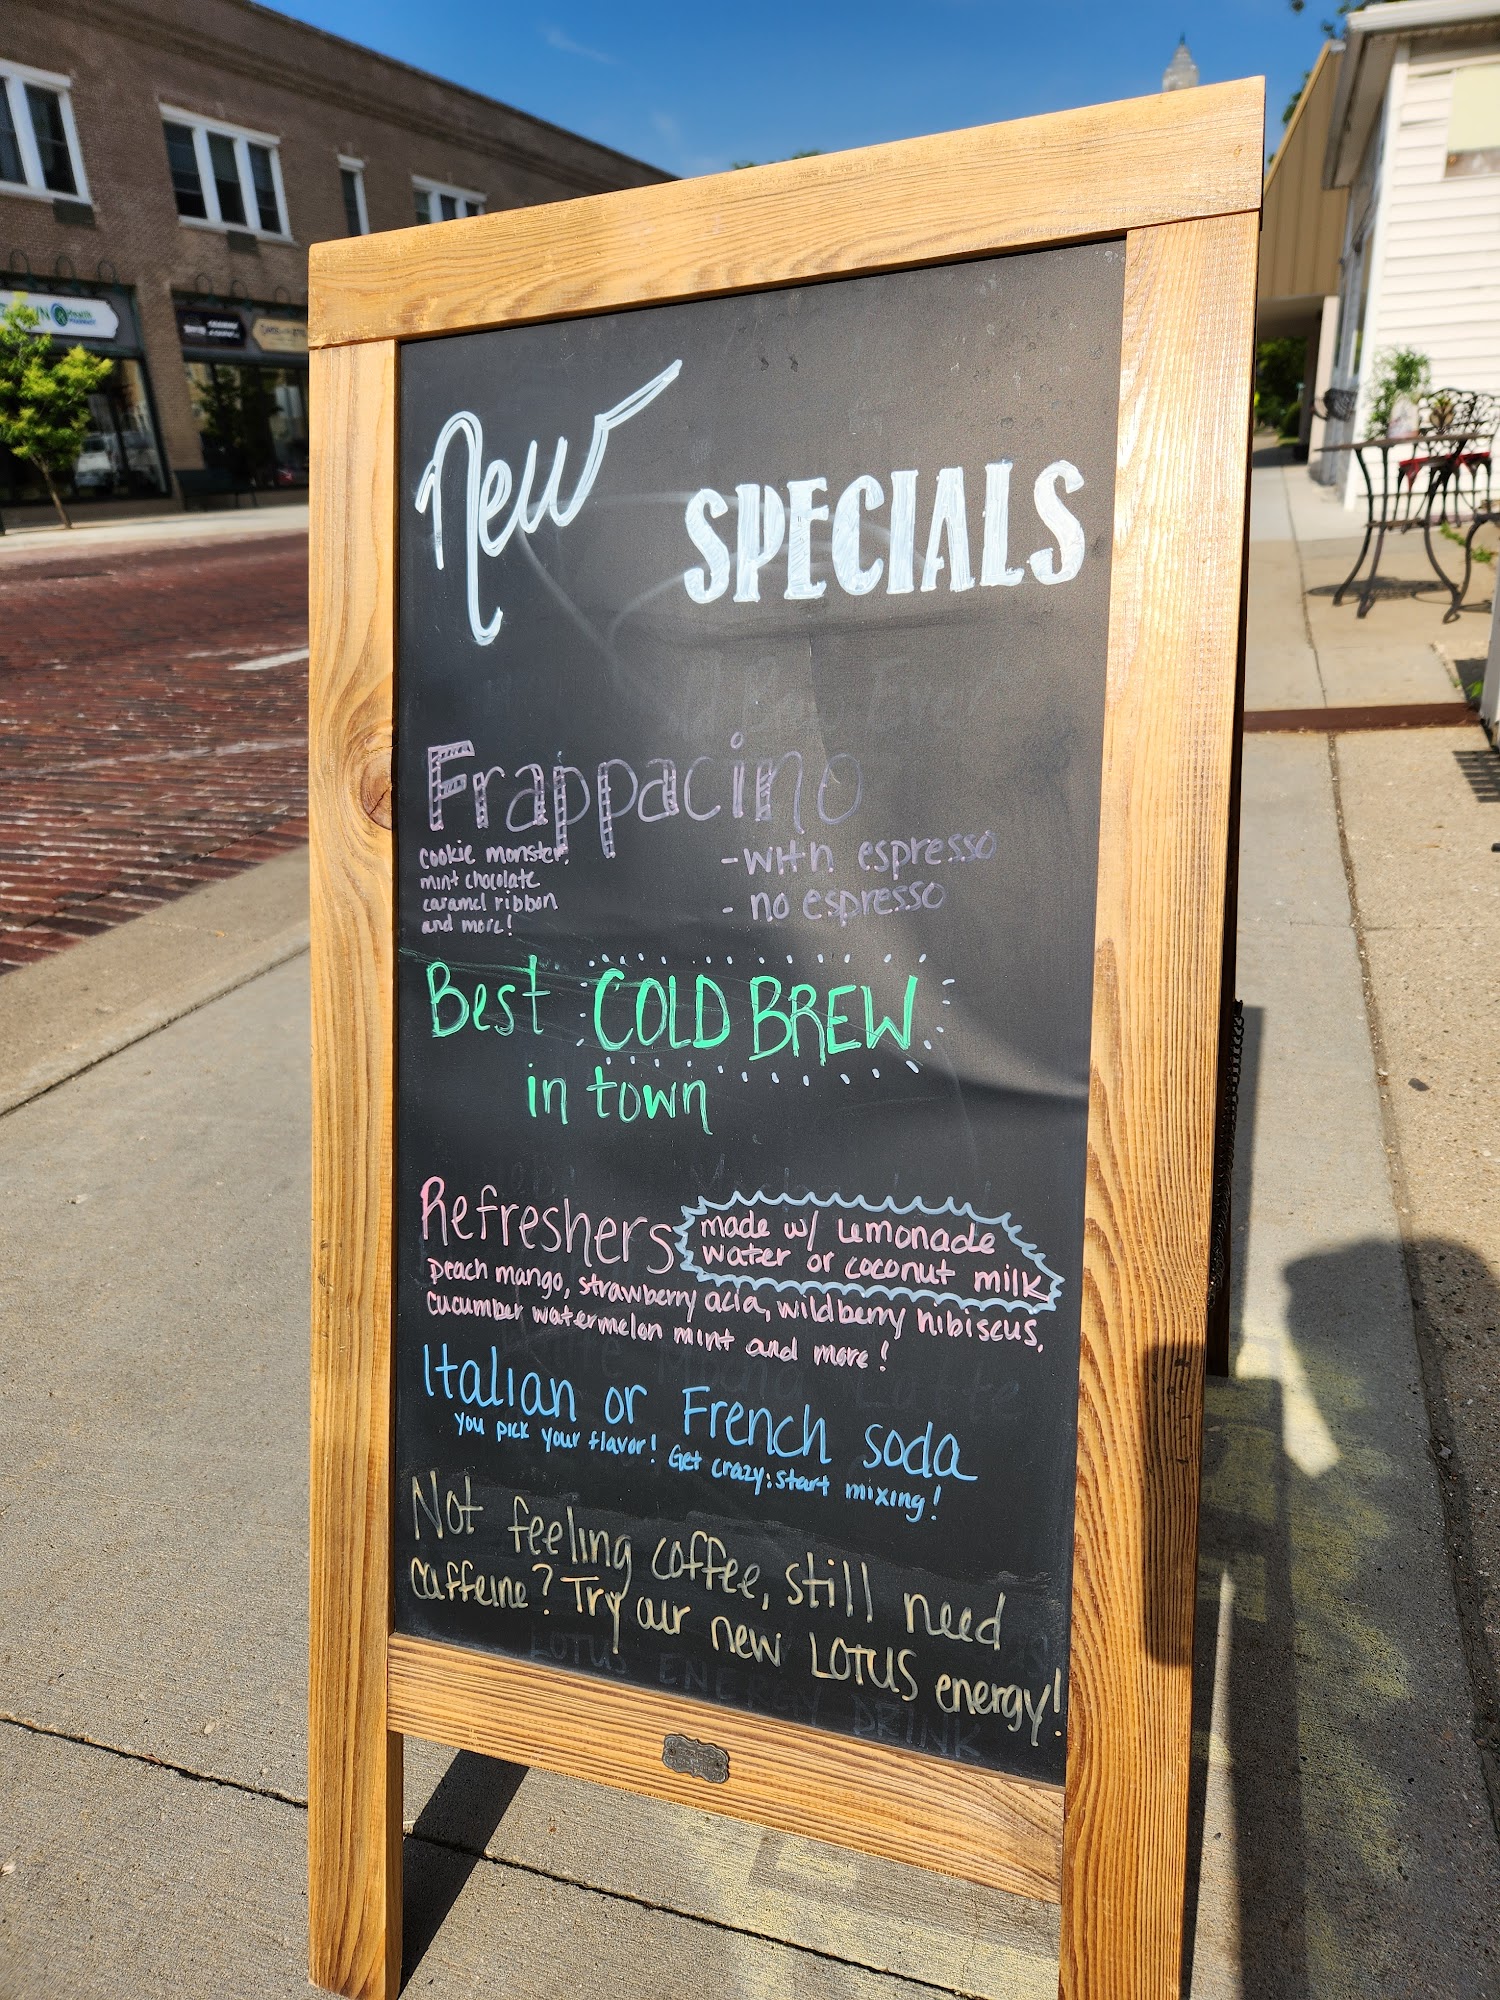 New
SPECIALS
Frappacino
cookie monster,
mint chocolate
caramel ribbon
and more!
- with espresso
- no espresso
Best COLD BREW
in town
Refreshers
made w/ Lemonade
water or coconut milk
peach mango, strawberry acia, wildberry hibiscus,
cucumber watermelon mint and more!
Italian or French soda
You pick your flavor! Get crazy: start mixing!
Not feeling coffee, still need
caffeine? Try our new LOTUS energy!
LOTUS ENERGY DRINK
Health